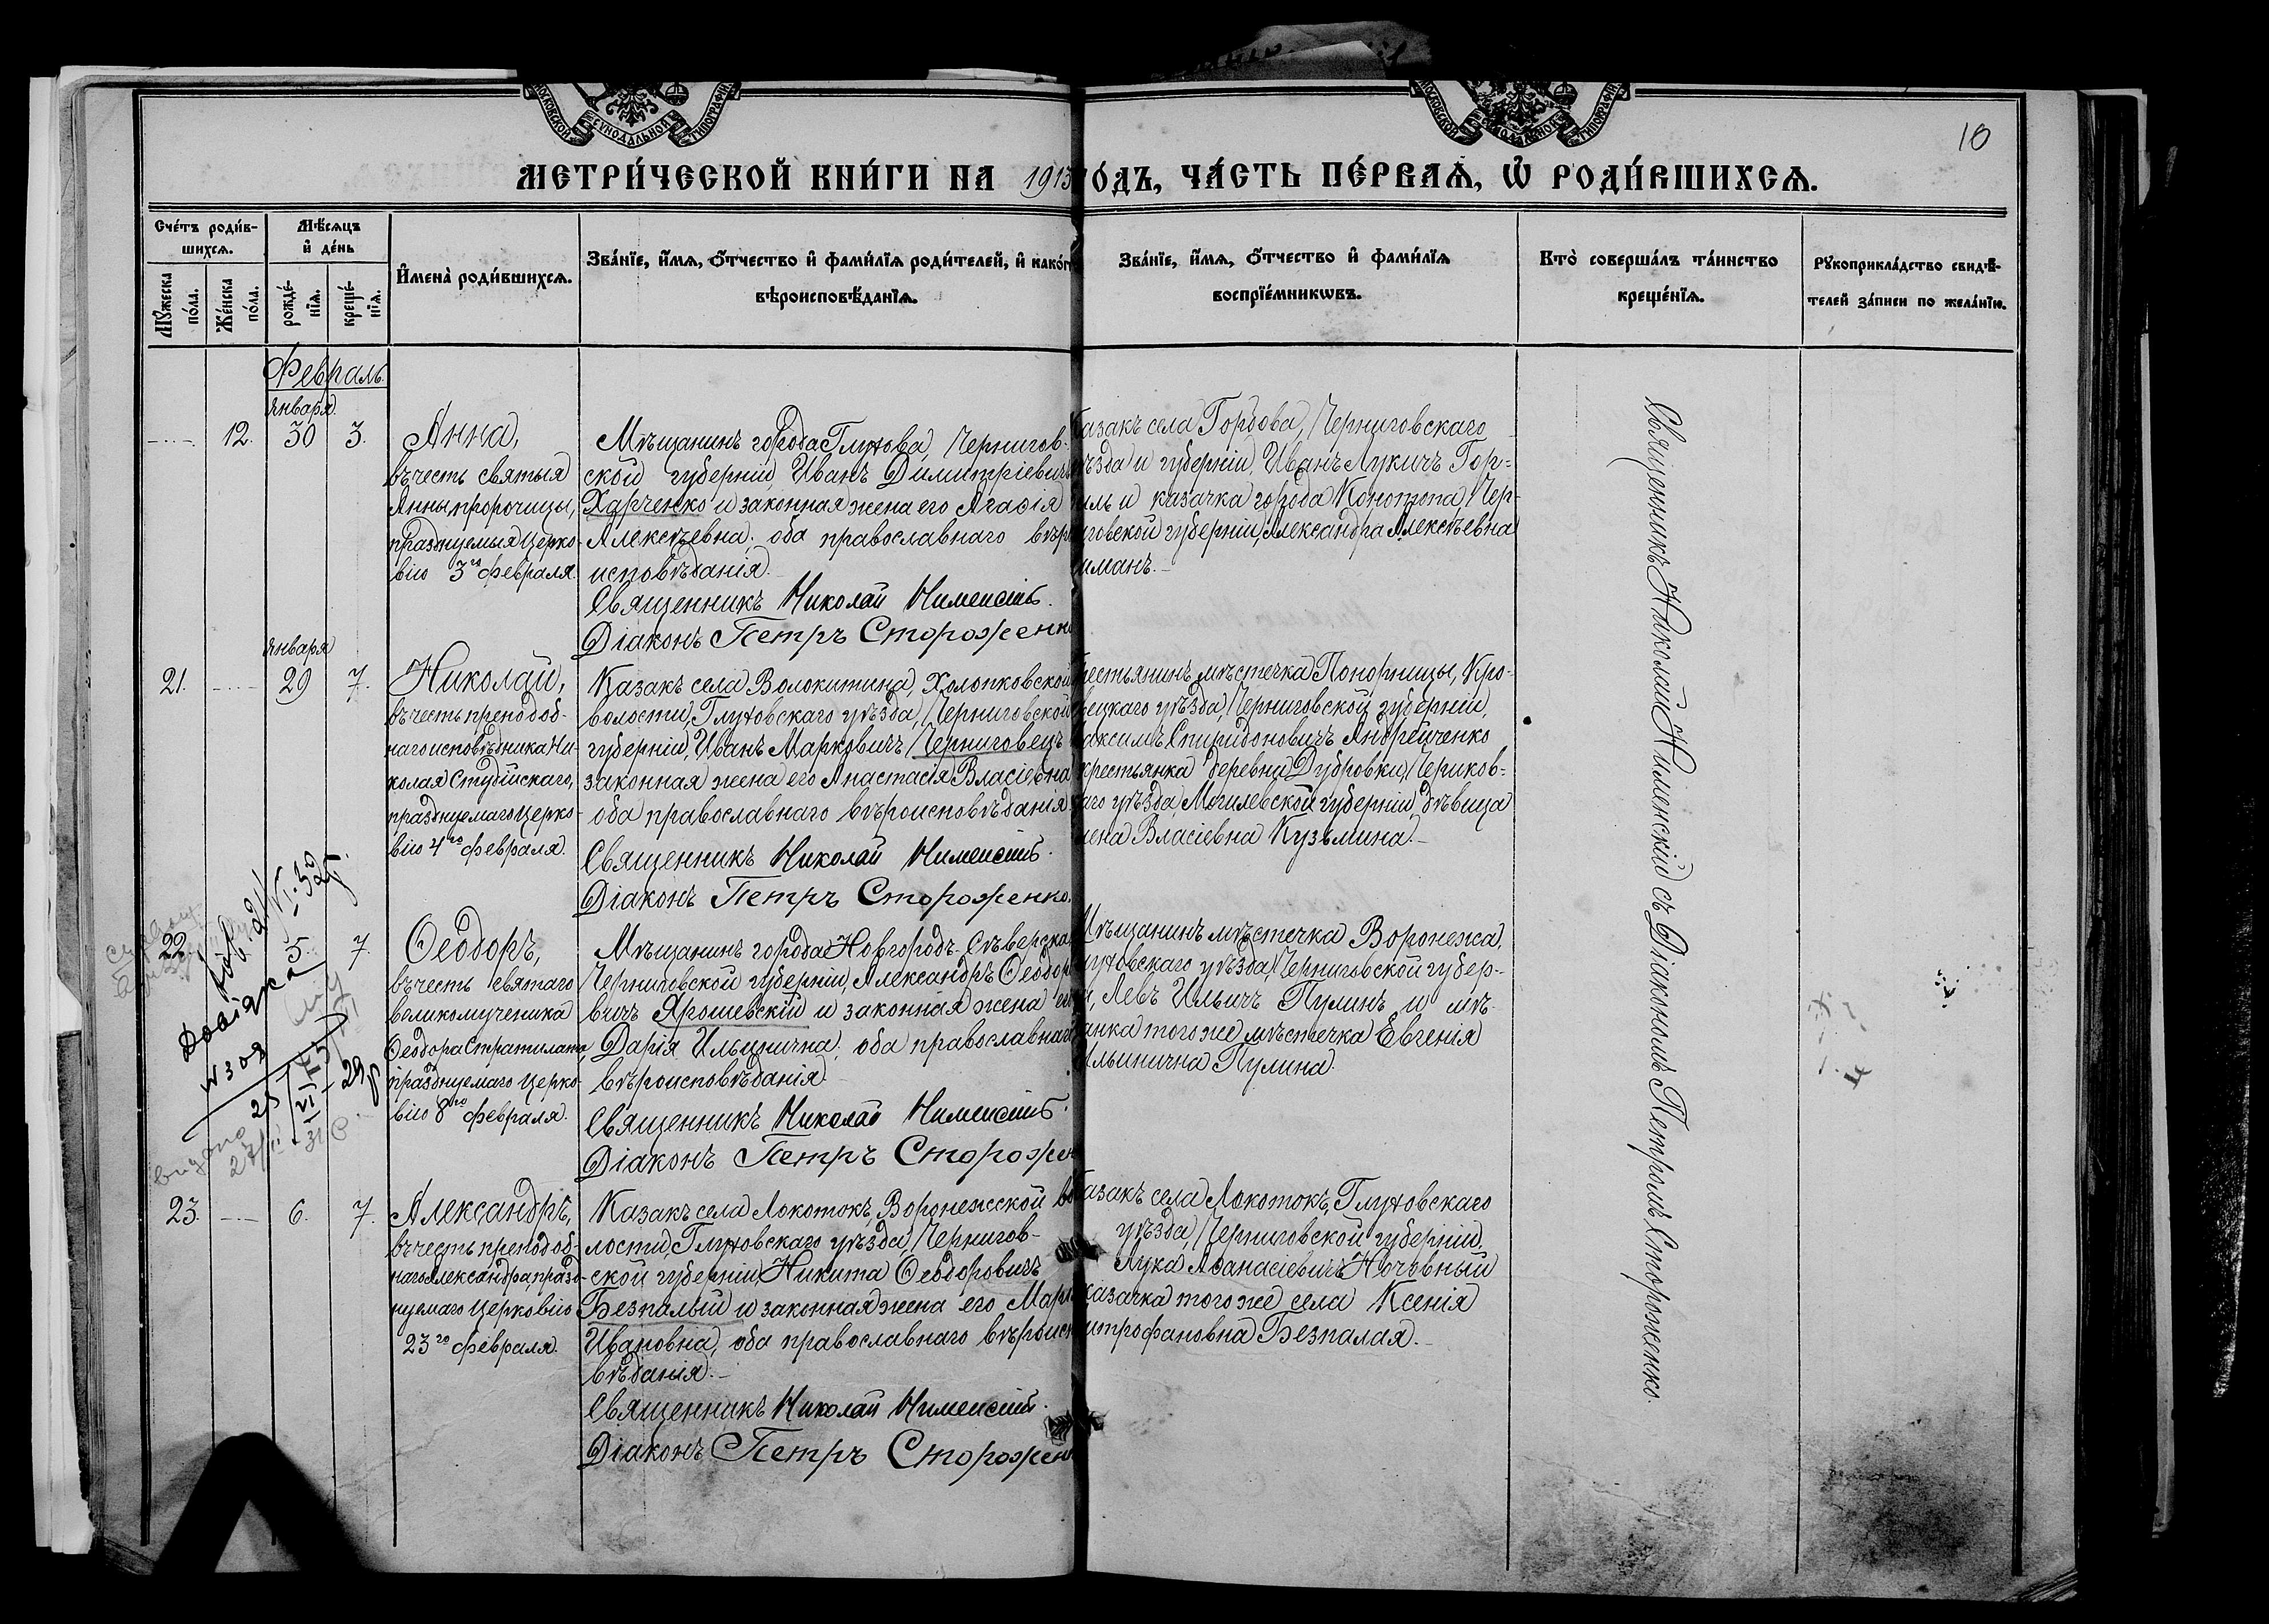 10
МОСКОВСКОЙ СУНОДАЛЬНОЙ ТИПОГРАФІИ
МОСКОВСКОЙ СУНОДАЛЬНОЙ ТИПОГРАФІИ
МЕТРИ́ЧЕСКОЙ КНИ́ГИ НА 1913 ГО́ДЪ, ЧА́СТЬ ПЕ́РВАѦ, Ѡ҆ РОДИ́ВШИХСѦ.
Сче́тъ роди́в-
шихсѧ.
Мꙋжеска
по́ла.
Же́нска
по́ла.
Мѣ́сѧцъ
и҆ де́нь
рожде́-
нїѧ.
креще́-
нїѧ.
И҆мена̀ роди́вшихсѧ.
Зва́нїе, и҆́мѧ, ѻ҆́тчество и҆ фами́лїѧ роди́телей, и҆ како́г
вѣроисповѣ́данїѧ.
Зва́нїе, и҆́мѧ, ѻ҆́тчество и҆ фами́лїѧ
воспрїе́мникѡвъ.
Кто̀ соверша́лъ та́инство
креще́нїѧ.
Рꙋкоприкла́дство свидѣ́-
телей за́писи по жела́нїю.
Февраль.
января.
12. 30 3.
Анна,
въ честь святыя
Анны пророчицы,
празднуемыя Церко-
вію 3го февраля.
Мѣщанинъ города Глухова, Чернигов-
ской губерніи, Иванъ Димитріевичъ
Харченко и законная жена его Агаѳія
Алексѣевна, оба православнаго вѣр
исповѣданія.
Священникъ Николай Нименскій.
Діаконъ Петръ Стороженко
азакъ села Горбова, Черниговскаго
ѣзда и губерніи, Иванъ Лукичъ Гор-
ль и казачка города Конотопа, Чер-
говской губерніи, Александра Алексѣевна
иманъ.
января
21. 29 7.
Николай,
въ честь преподоб-
наго исповѣдника Ни-
колая Студійскаго,
празднуемаго Церко-
вію 4го февраля.
Казакъ села Волокитина, Холопковской
волости, Глуховскаго уѣзда, Черниговской
губерніи, Иванъ Марковичъ Черниговецъ
законная жена его Анастасія Власіевна
оба православнаго вѣроисповѣданія
Священникъ Николай Нименскій.
Діаконъ Петръ Стороженко.
рестьянинъ мѣстечка Понорницы, Кро-
вецкаго уѣзда, Черниговской губерніи,
аксимъ Спиридоновичъ Андрейченко
крестьянка деревни Дубровки, Чериков-
аго уѣзда, Могилевской губерніи, дѣвица
лена Власіевна Кузьмина.
22. 5. 7.
Ѳеодоръ,
въ честь святаго
великомученика
Ѳеодора Стратилата
празднуемаго Церко-
вію 8го февраля.
Мѣщанинъ города Новгородъ-Сѣверска
Черниговской губерніи, Александръ Ѳеодор
вичъ Ярошевскій и законная жена ег
Дарія Ильинична, оба православнаг
вѣроисповѣданія.
Священникъ Николай Нименскій.
Діаконъ Петръ Стороже
Мѣщанинъ мѣстечка Воронежа,
луховскаго уѣзда, Черниговской губер-
и, Левъ Ильичъ Пулинъ и мѣ-
анка того же мѣстечка Евгенія
Ильинична Пулина.
Довідка
видано
23. 6. 7.
Александръ,
въ честь преподоб-
наго Александра, празд-
нуемаго Церковію
23го февраля.
Казакъ села Локотокъ, Воронежской во
лости, Глуховскаго уѣзда, Чернигов-
ской губерніи, Никита Ѳеодоровичъ
Безпалый и законная жена его Мари
Ивановна, оба православнаго вѣроисп
вѣданія.
Священникъ Николай Нименскій.
Діаконъ Петръ Стороже
азакъ села Локотокъ, Глуховскаго
уѣзда, Черниговской губерніи,
Лука Аѳанасіевичъ Ночовный
казачка того же села Ксенія
итрофановна Безпалая.
Священникъ Николай Нименскій съ Діакономъ Петромъ Стороженко.